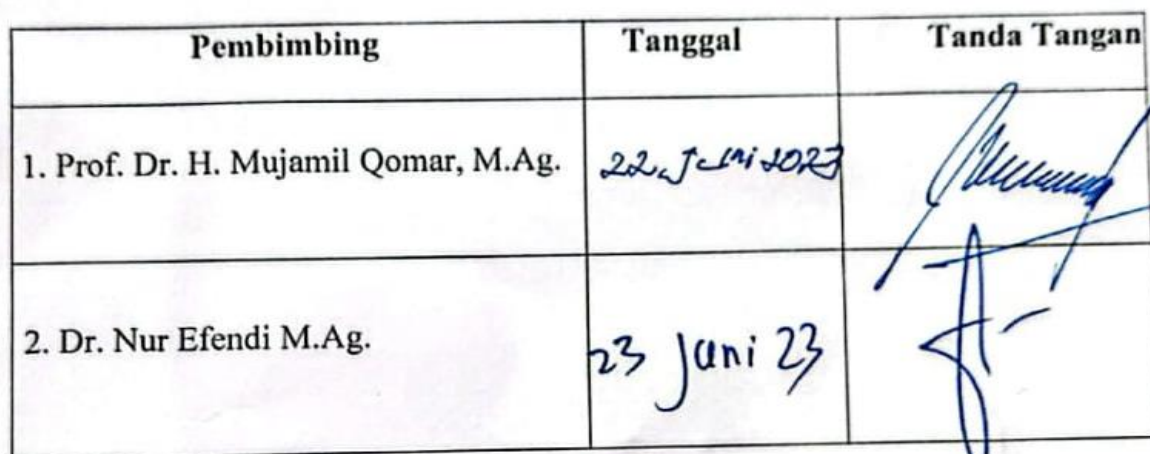 Pembimbing Tanggal Tanda Tangan
1. Prof. Dr. H. Mujamil Qomar, M.Ag. 22 Juni 2023
2. Dr. Nur Efendi M.Ag. 23 Juni 23